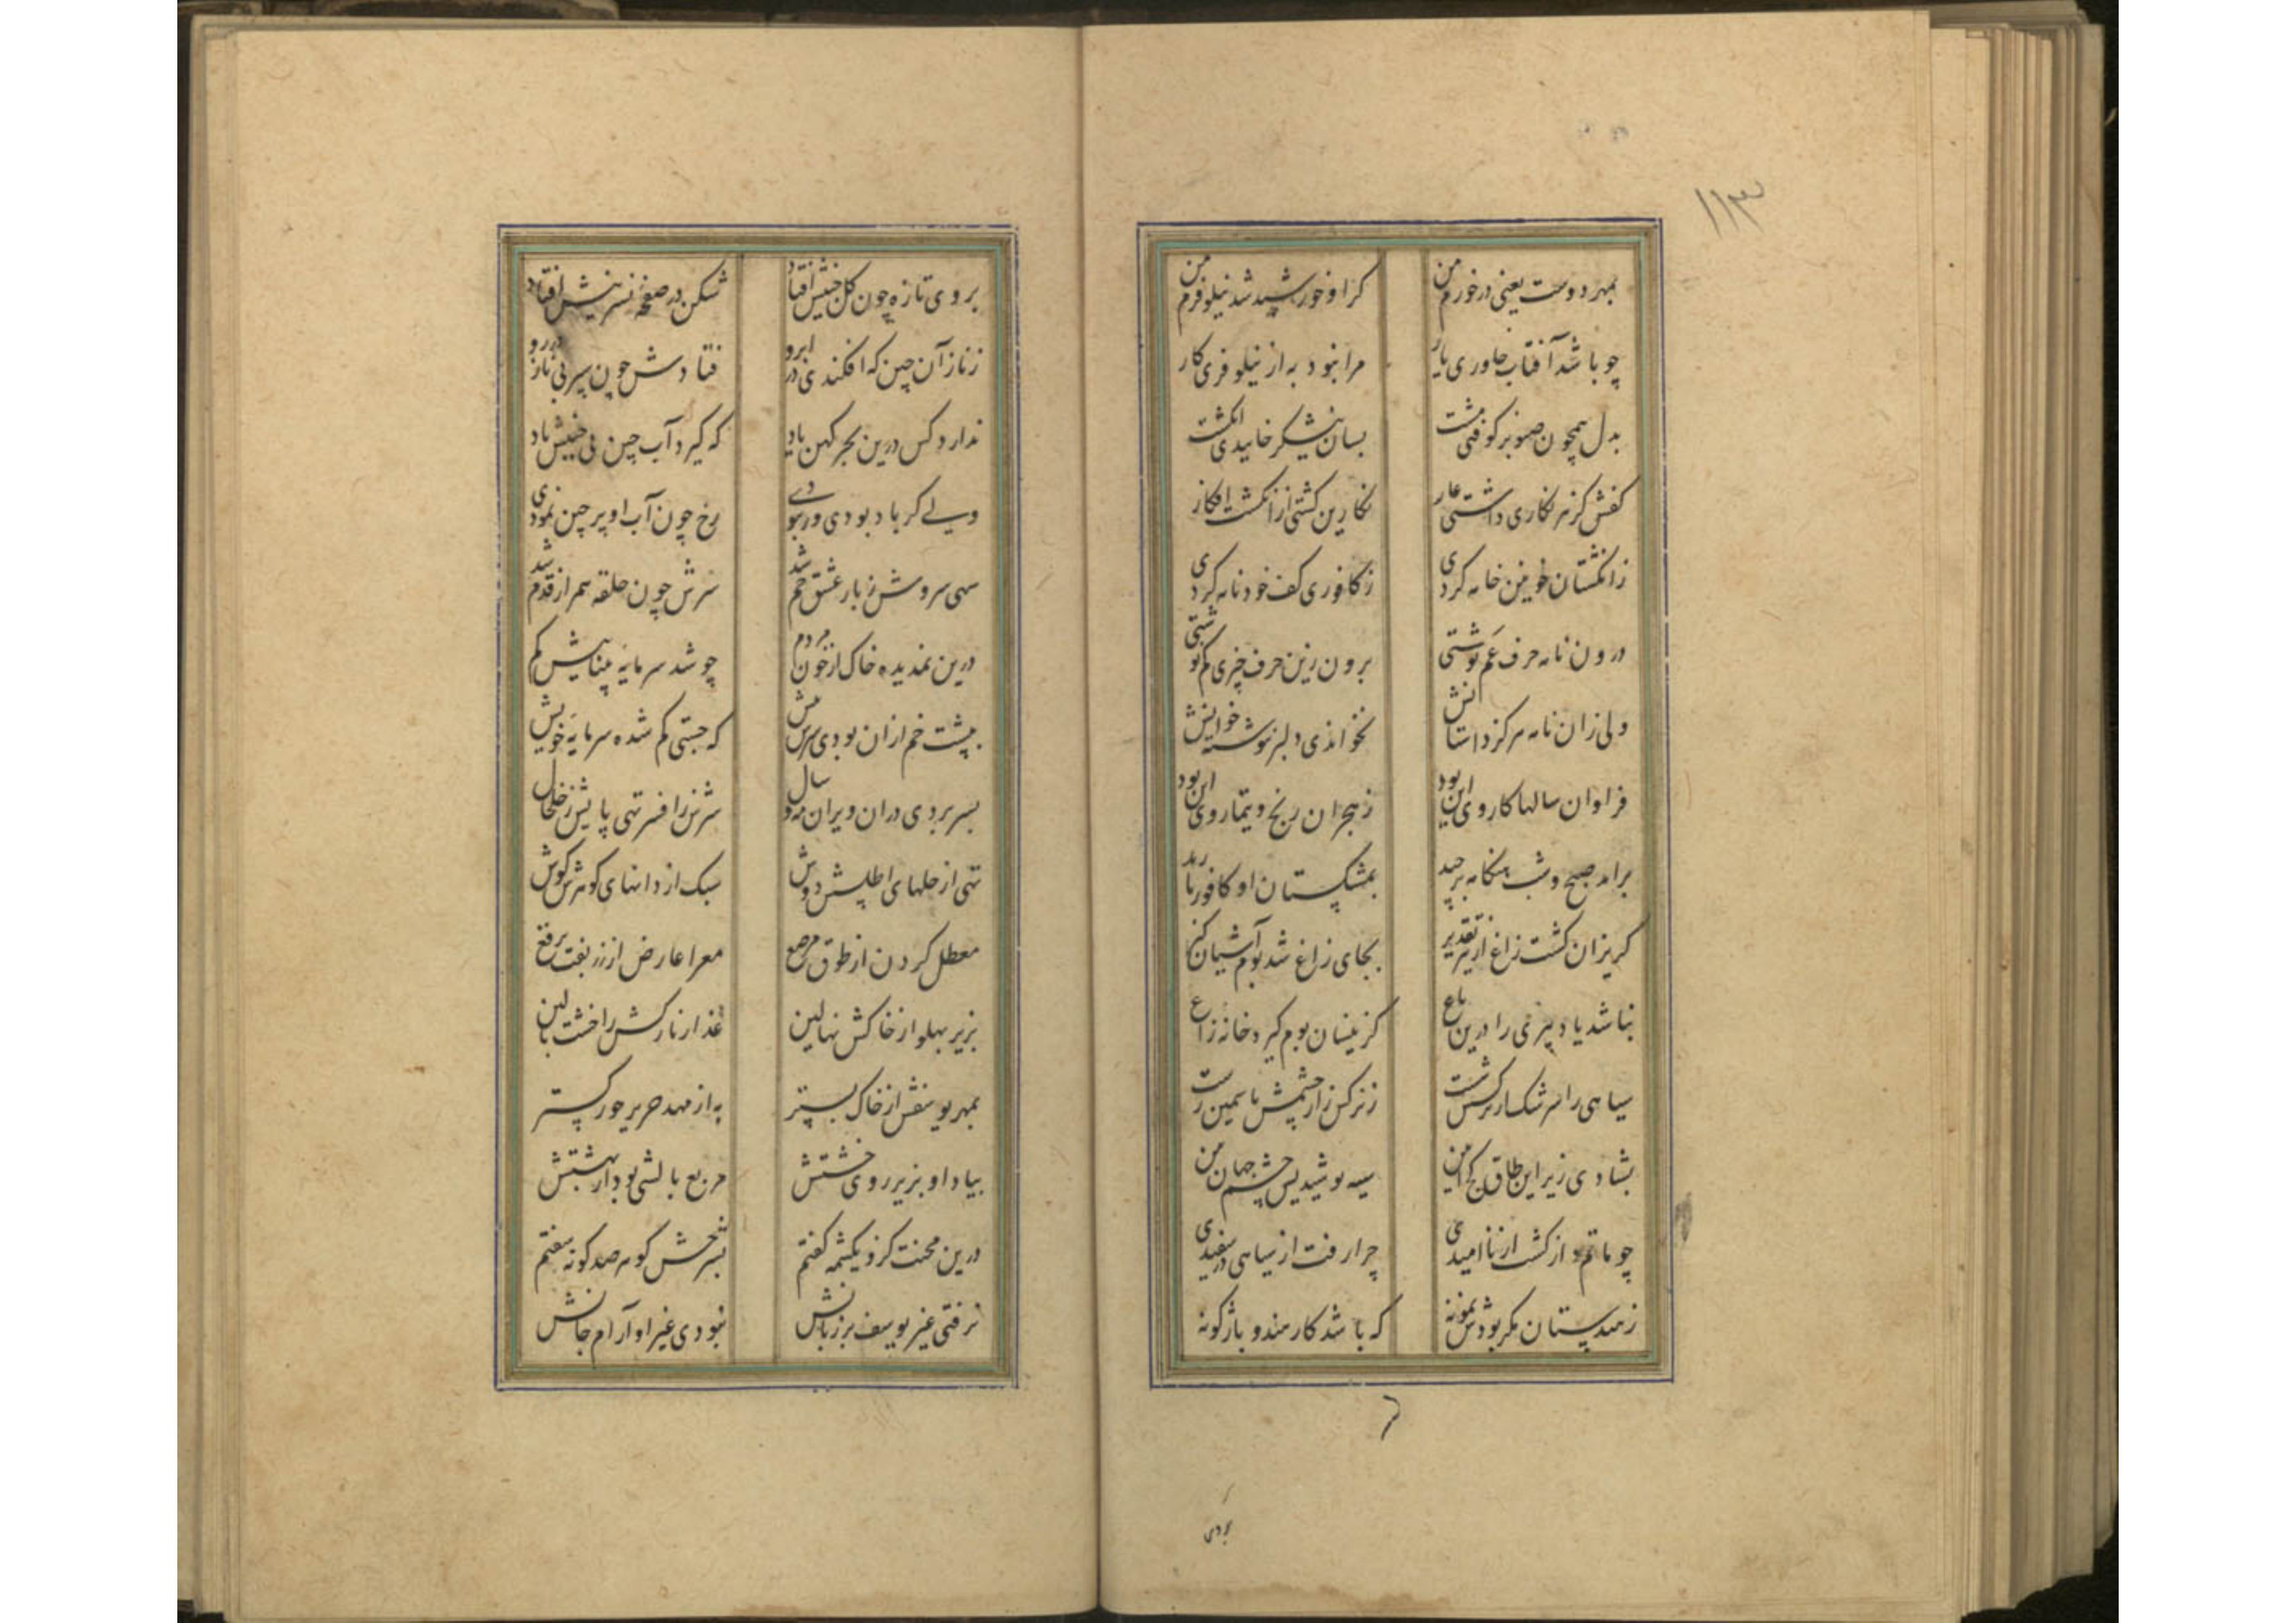 ۱۱۳
بمهر دوست یعنی در خورم من کز او خورشید شد نیلوفرم من
چو باشد آفتاب خاوری یار مرا نبود به از نیلوفری کار
بدل همچون صنوبر کوفتی مشت بسان نیشکر خاییدی انگشت
کفش کز هر نگاری داشتی عار نگارین گشتی از انگشت افکار
ز انگشتان خونین خامه کردی ز کافوری کف خود نامه کردی
درون نامه حرف غم نوشتی برون زین حرف چیزی کم نوشتی
ولی زان نامه هرگز داستانش نخواندی دلبر نوشته خوانش
فراوان سالها کار وی این بود ز هجران رنج و تیمار وی این بود
برآمد صبح و شب هنگامه برچید بمشکستان او کافور بارید
گریزان گشت زاغ از تیر تقدیر بجای زاغ شد بوم آشیان گیر
نباشد یاد پیری را درین باغ کزینسان بوم گیرد خانه زاغ
سیاهی را سرشک از نرگسش شست ز نرگس زار چشمش یاسمین رست
بشادی زیر این طاق کج آیین سیه پوشید پس چشم جهان بین
چو ماتم دار گشت از ناامیدی چرا رفت از سیاهی در سفیدی
ز هندستان مگر بودش نمونه که باشد کار هندو باژگونه
بروی
بروی تازه چون گل چینش افتاد شکن در صفحه نسرینش افتاد
ز ناز آن چین که افکندی در ابرو فتادش چون پیر بی ناز در رو
ندارد کس درین بحر کهن یاد که گیرد آب چین بی جنبش باد
ولے گر باد بودی ور نبودے رخ چون آب او پر چین نمودی
سهی سروش ز بار عشق خم شد سرش چون حلقه همراز قدم شد
درین نمدیده خاک از خون مردم چو شد سرمایه بیناییش گم
بپشت خم از ان بودی سرش پیش که جستی گم شده سرمایه خویش
بسر بردی دران ویران مه و سال سرش ز افسر تهی پایش ز خلخال
تهی از حلهای اطلسش دوش سبک از دانهای گوهرش گوش
معطل گردن از طوق مرصع معرا عارض از زربفت برقع
بزیر پهلو از خاکش نهالین عذار نازکش را خشت بالین
بمهر یوسفش از خاک بستر به از مهد حریر حور گستر
بیاد او بزیر روی خشتش مربع بالشی بود از بهشتش
درین محنت کزو یکشمه گفتم بشرحش گوهر صد گونه سفتم
نرفتی غیر یوسف بر زبانش نبودی غیر او آرام جانش